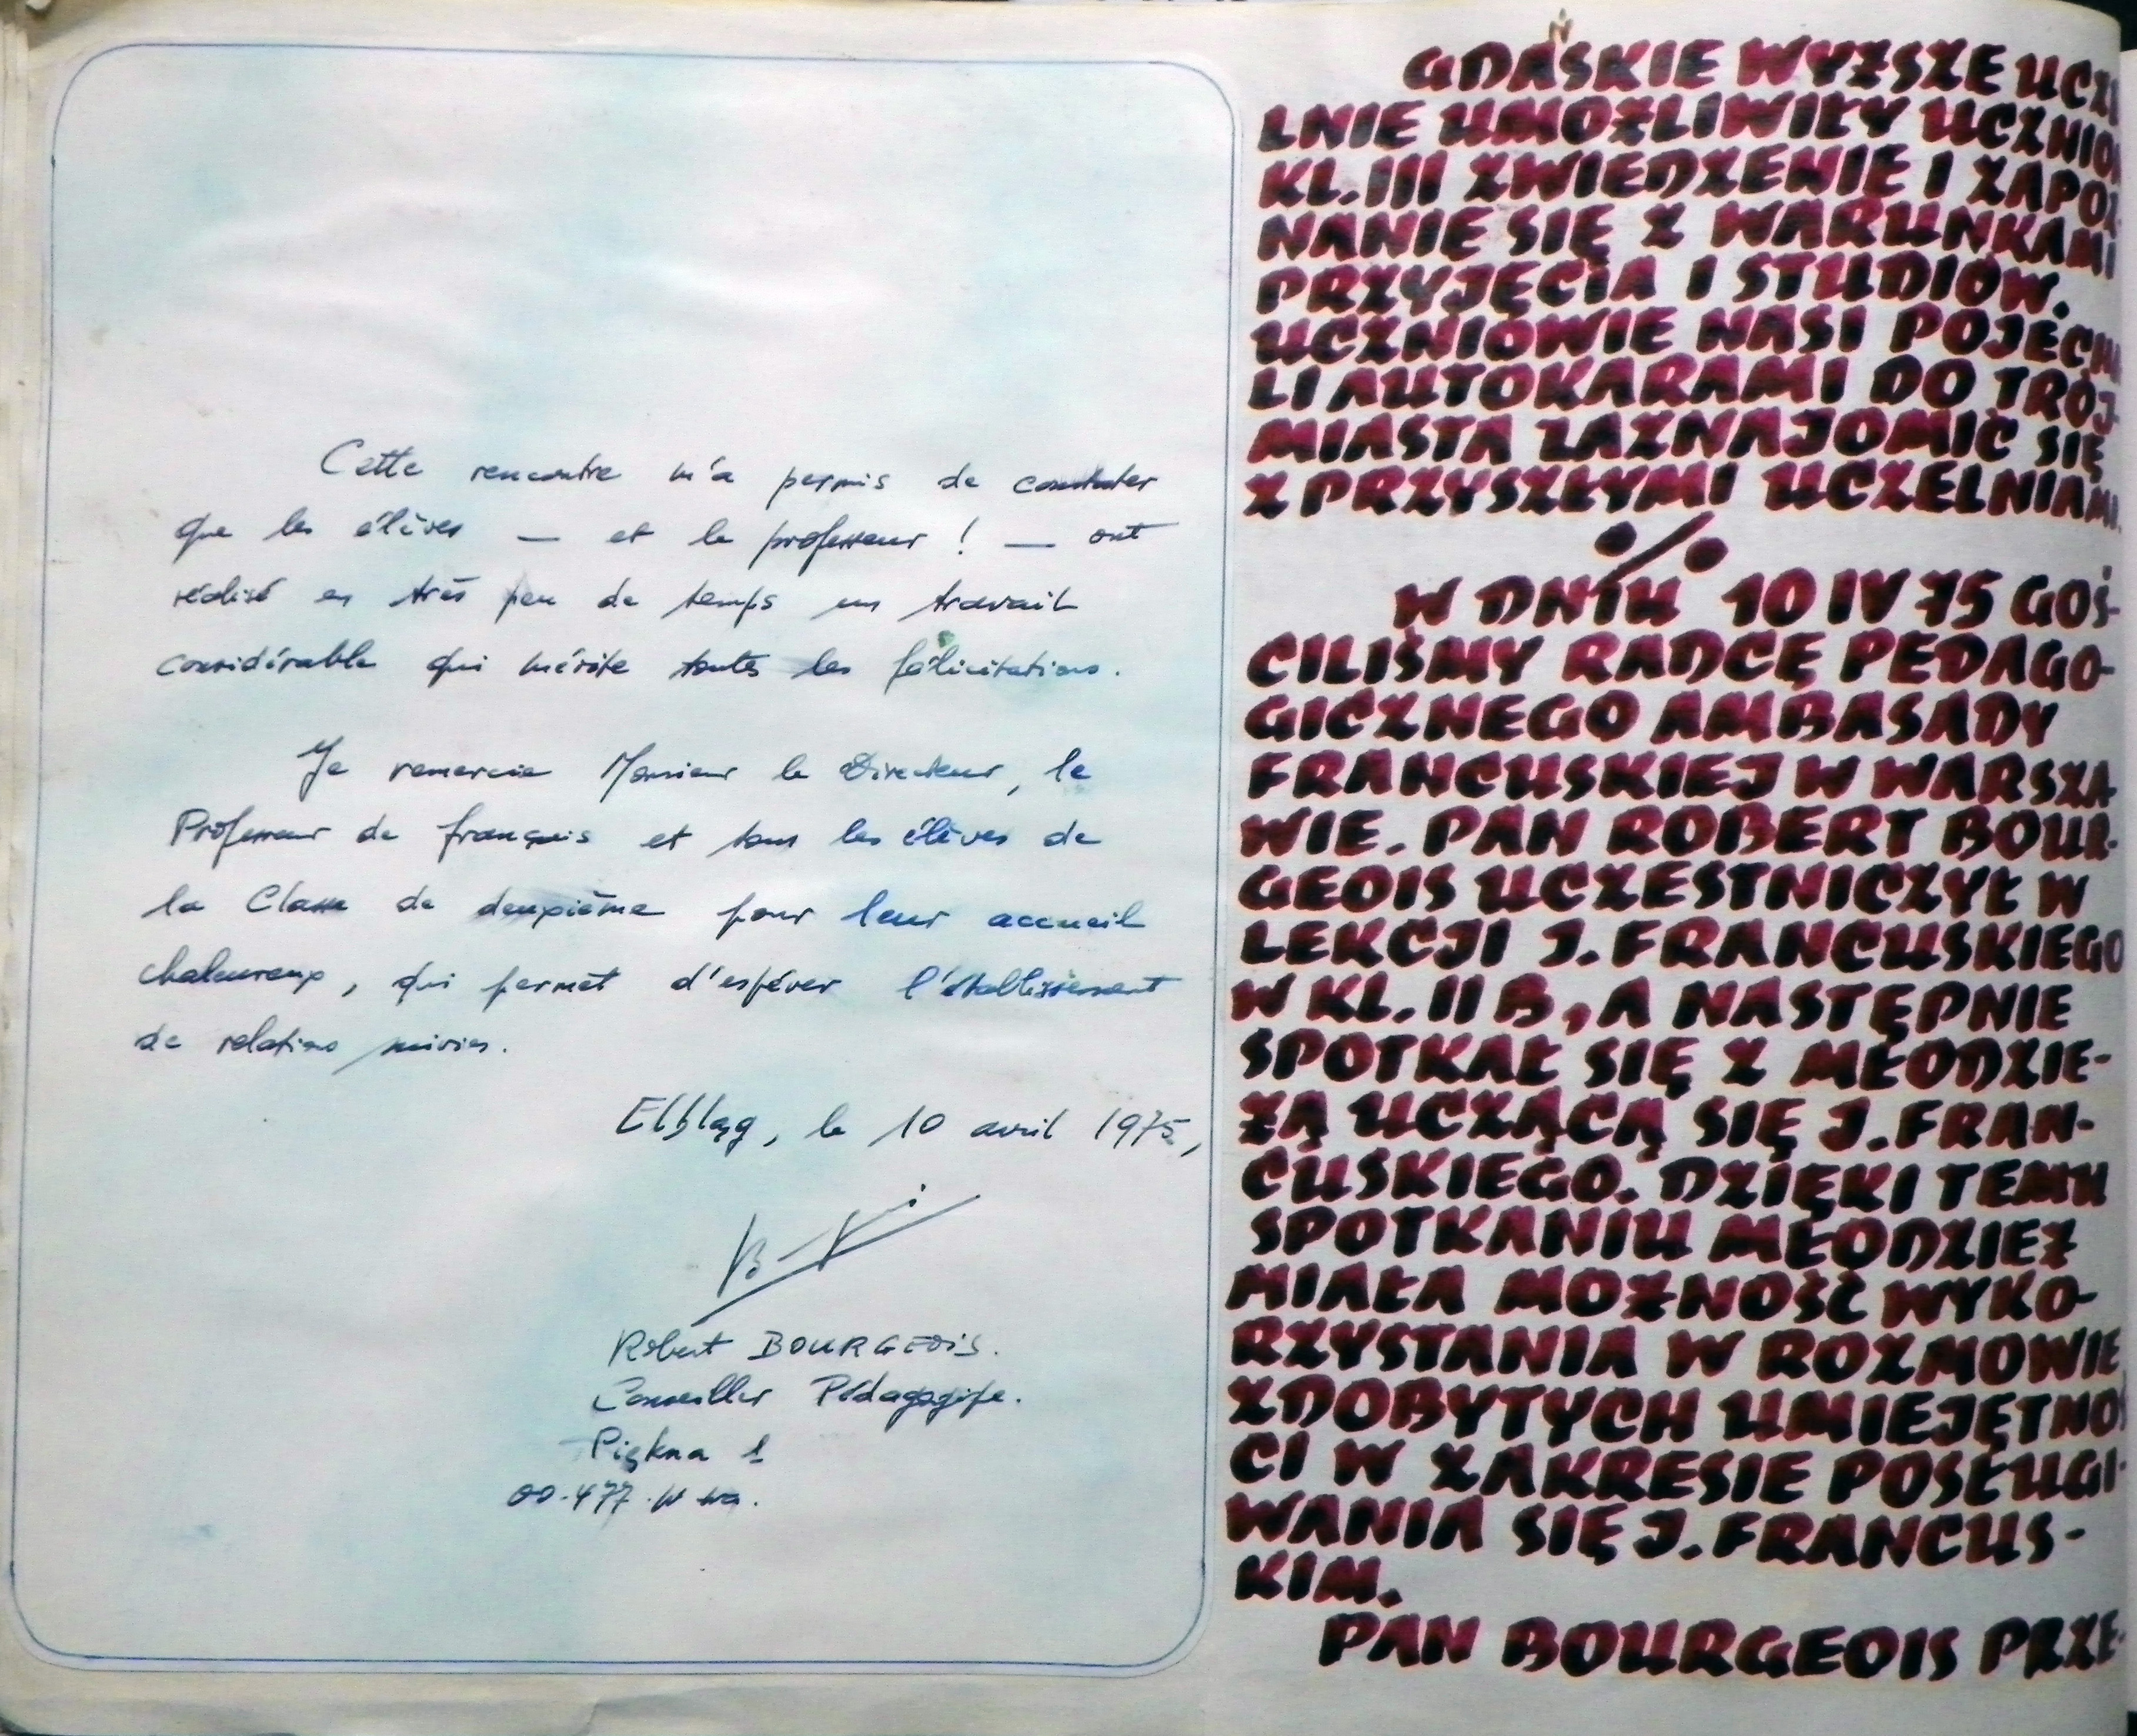 Cette rencontre m'a permis de constater
que les élèves — et le professeur ! — ont
réalisé en très peu de temps un travail
considérable qui mérite toutes les félicitations.
Je remercie Monsieur le Directeur, le
Professeur de français et tous les élèves de
la Classe de deuxième pour leur accueil
chaleureux, qui permet d'espérer l'établissement
de relations suivies.
Elbląg, le 10 avril 1975,
Robert BOURGEOIS.
Conseiller Pédagogique.
Piękna 1
00-477 W-wa.
GDAŃSKIE WYŻSZE UCZE
LNIE UMOŻLIWIŁY UCZNIOM
KL. III ZWIEDZENIE I ZAPOZ-
NANIE SIĘ Z WARUNKAMI
PRZYJĘCIA I STUDIÓW.
UCZNIOWIE NASI POJECHA
LI AUTOKARAMI DO TRÓJ-
MIASTA ZAZNAJOMIĆ SIĘ
Z PRZYSZŁYMI UCZELNIAMI.
%
W DNIU 10 IV 75 GOŚ-
CILIŚMY RADCĘ PEDAGO-
GICZNEGO AMBASADY
FRANCUSKIEJ W WARSZA-
WIE. PAN ROBERT BOUR-
GEOIS UCZESTNICZYŁ W
LEKCJI J. FRANCUSKIEGO
W KL. II B, A NASTĘPNIE
SPOTKAŁ SIĘ Z MŁODZIE-
ŻĄ UCZĄCĄ SIĘ J. FRAN-
CUSKIEGO. DZIĘKI TEMU
SPOTKANIU MŁODZIEŻ
MIAŁA MOŻNOŚĆ WYKO-
RZYSTANIA W ROZMOWIE
ZDOBYTYCH UMIEJĘTNOŚ
CI W ZAKRESIE POSŁUGI-
WANIA SIĘ J. FRANCUS-
KIM.
PAN BOURGEOIS PRZE-